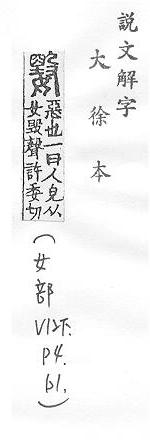 説文解字
大徐本
惡也一曰人皃从
女毀聲許委切
(女部 V12下. P4. b1.)